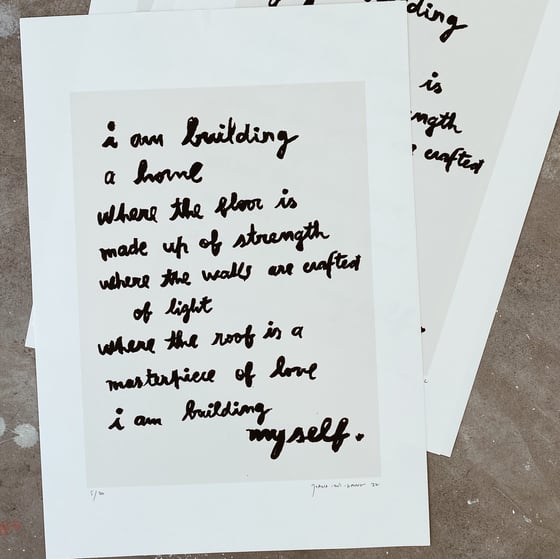 i am building
a home
where the floor is
made up of strength
where the walls are crafted
of light
where the roof is a
masterpiece of love
i am building
myself.
5/20
22
ding
is
ngth
crafted